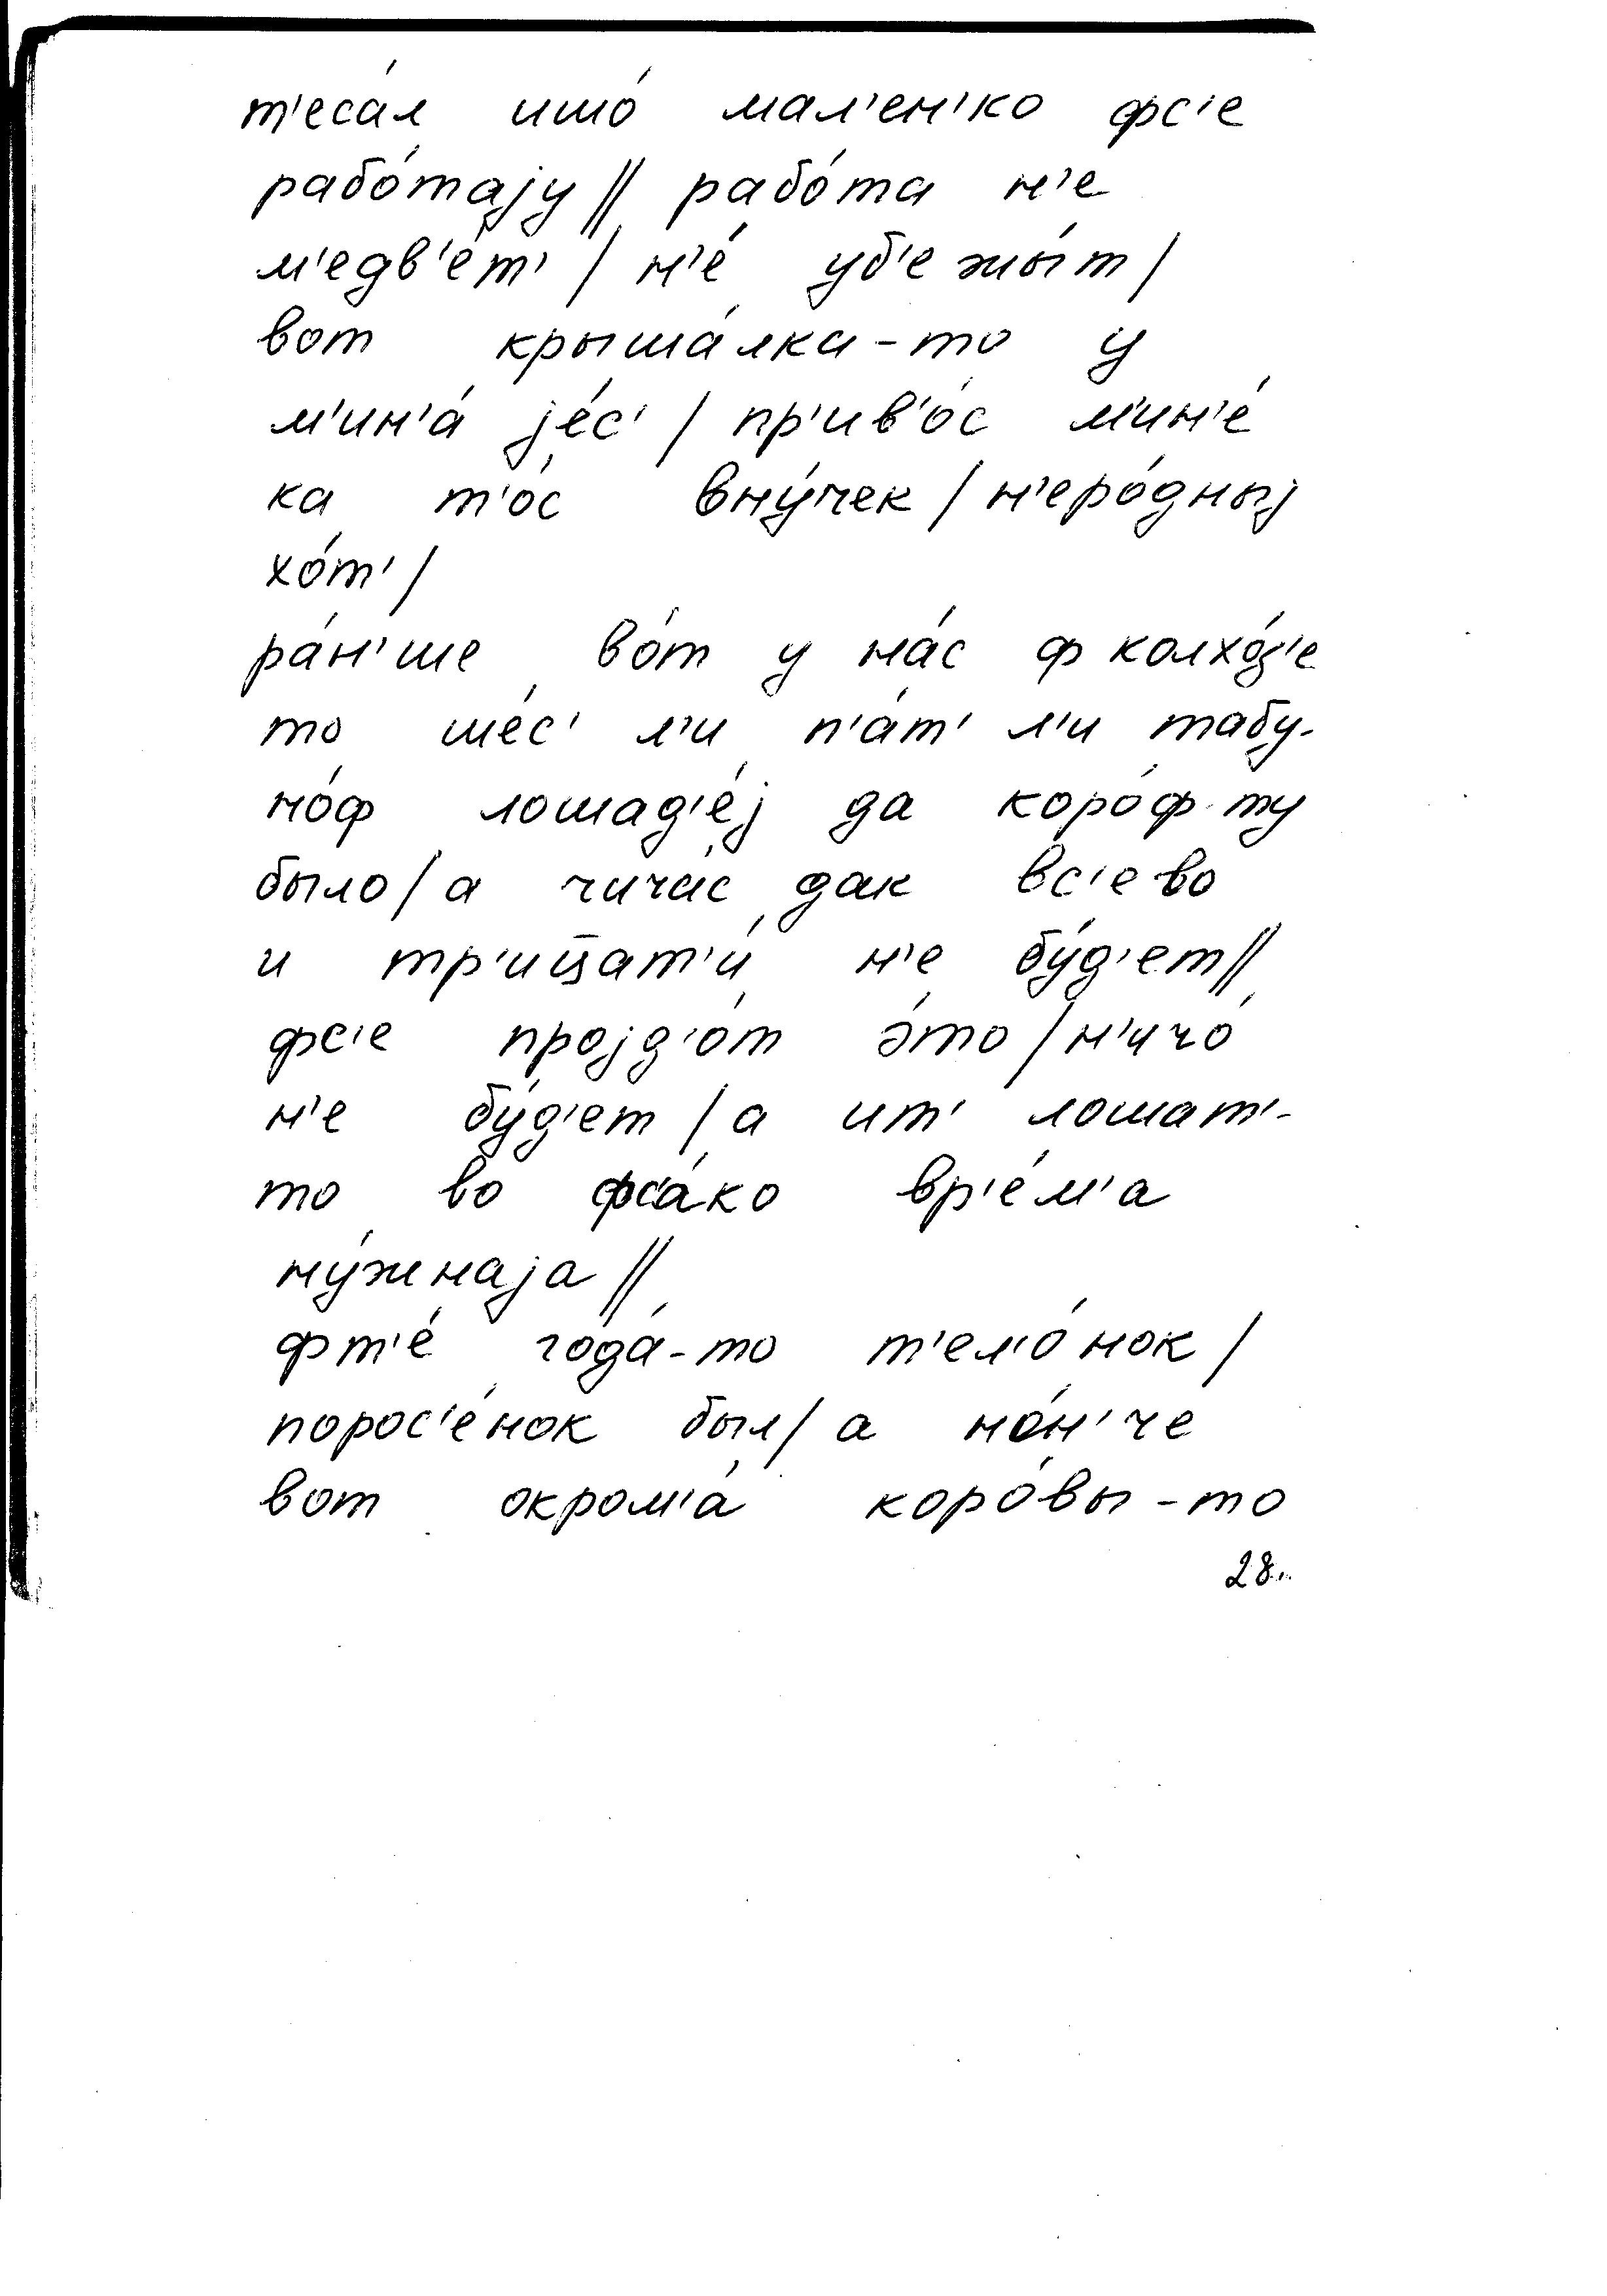 т'еса́л ишо́ мал'ен'ко фс'е
рабо́тају || рабо́та н'е
м'едв'е́т' / н'е́ уб'ежы́т /
вот крыша́лка-то у
м'ин'а́ је́с' / пр'ив'о́с м'ин'е́
ка т'о́с вну́чек / н'еро́дныј
хо́т' /
ра́н'ше во́т у на́с ф колхо́з'е
то ше́с' л'и п'а́т' л'и табу-
но́ф лошад'е́ј да коро́ф ту
было / а чича́с дак вс'ево
и тр'ицат'и́ н'е бу́д'ет ||
фс'е пројд'о́т э́то / н'ичо́
н'е бу́д'ет / а ит' лошат'-
то во фс'а́ко вр'е́м'а
ну́жнаја ||
фт'е́ года́-то т'ел'о́нок /
порос'е́нок был / а но́н'че
вот окром'а́ коро́вы-то
28.